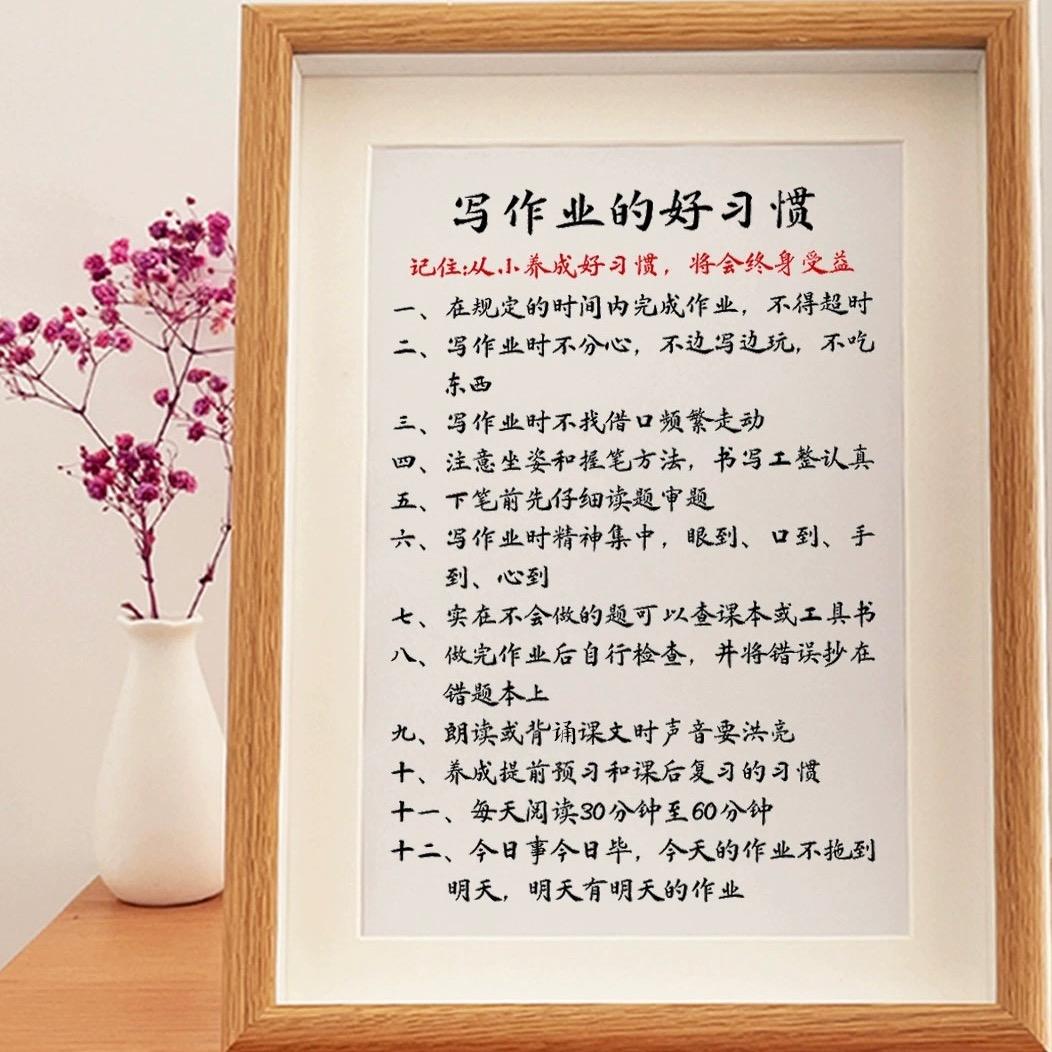 写作业的好习惯
记住:从小养成好习惯，将会终身受益
一、在规定的时间内完成作业，不得超时
二、写作业时不分心，不边写边玩，不吃
东西
三、写作业时不找借口频繁走动
四、注意坐姿和握笔方法，书写工整认真
五、下笔前先仔细读题审题
六、写作业时精神集中，眼到、口到、手
到、心到
七、实在不会做的题可以查课本或工具书
八、做完作业后自行检查，并将错误抄在
错题本上
九、朗读或背诵课文时声音要洪亮
十、养成提前预习和课后复习的习惯
十一、每天阅读30分钟至60分钟
十二、今日事今日毕，今天的作业不拖到
明天，明天有明天的作业